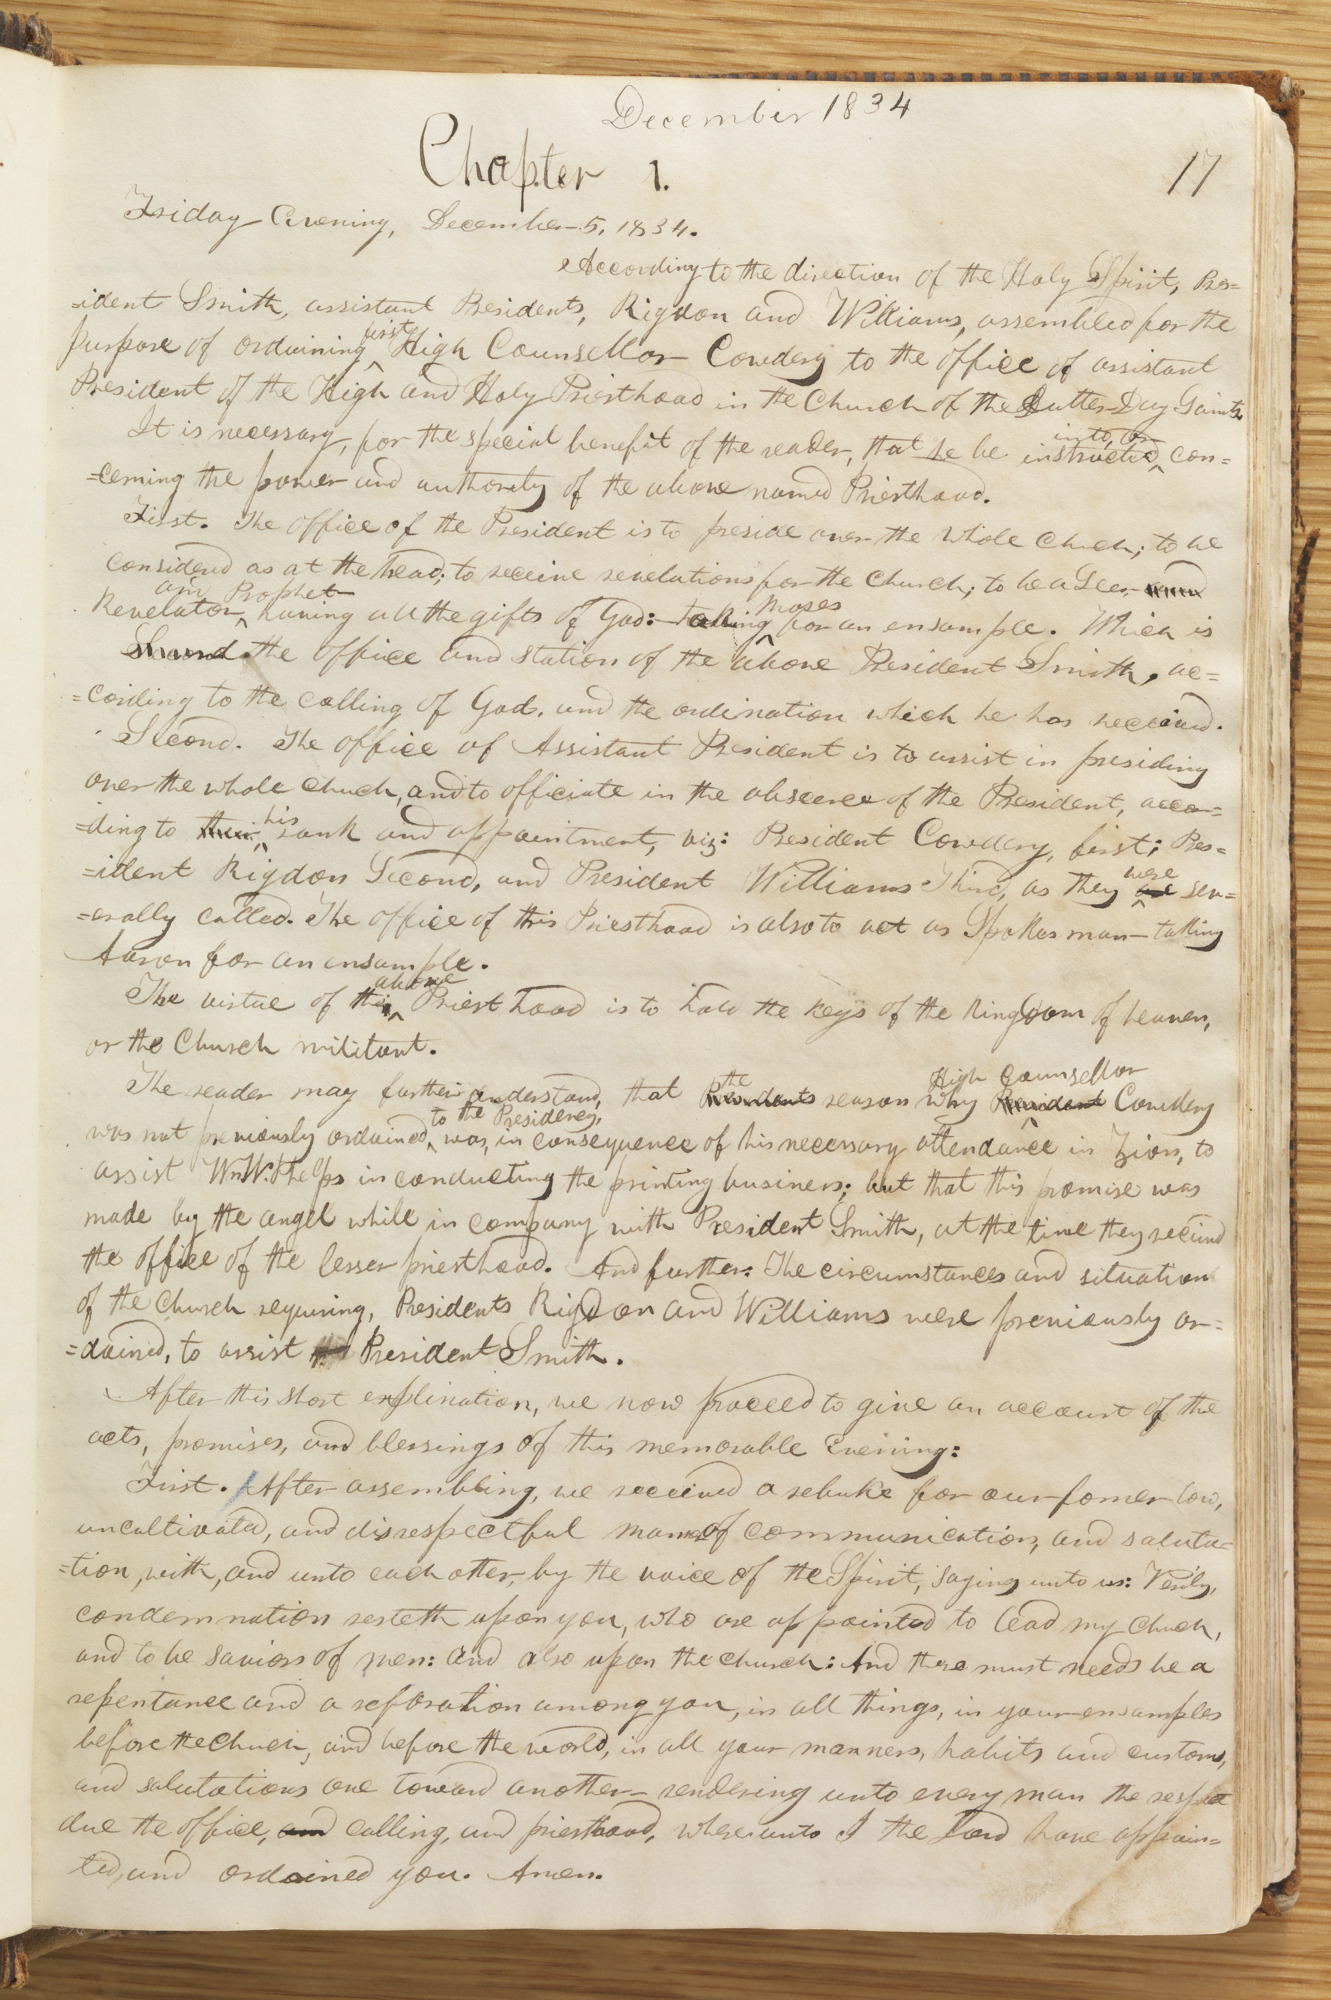 December 1834
Chapter 1.
17
Friday Evening, December 5, 1834.
According to the direction of the Holy Spirit, Pres=
=ident Smith, assistant Presidents, Rigdon and Williams, assembled for the
first
Purpose of ordaining ^ High Counsellor Cowdery to the office of assistant
President of the High and Holy Priesthood in the Church of the Latter-Day Saints
It is necessary, for the special benefit of the reader, that he be instructed ^ con=
into, or
=cerning the power and authority of the above named Priesthood.
First. The office of the President is to preside over the whole Chuch; to be
considered as at the head; to receive revelations for the Church; to be a Seer, and
any Prophet
Revelator ^ having all the gifts of God:- taking ^ for an ensample. Which is
Moses
the office and station of the above President Smith, ac=
=cording to the calling of God, and the ordination which he has received.
Second. The office of Assistant President is to assist in presiding
over the whole chuch, and to officiate in the abscence of the President, accor=
=ding to their ^ his rank and appointment, viz: President Cowdery, first; Pres=
=ident Rigdon Second, and President Williams Third, as they are ^ were sev=
=erally called. The office of this Priesthood is also to act as Spokesman- taking
Aaron for an ensample.
above
The virtue of this ^ Priesthood is to hold the keys of the kingdom of heaven,
or the Church militant.
The reader may further understand, that Presidents the reason why President ^ High Counsellor Cowdery
to the Presidency,
was not previously ordained ^ was, in consequence of his necessary attendance in Zion, to
assist Wm W. Phelps in conducting the printing business; but that this promise was
made by the angel while in company with President Smith, at the time they recievd
the office of the lesser priesthood. And further: The circumstances and situation
of the Church requiring, Presidents Rigdon and Williams were previously or=
=dained, to assist President Smith.
After this short explination, we now proceed to give an account of the
acts, promises, and blessings of this memorable Evening:
First. After assembling, we received a rebuke for our former low,
uncultivated, and disrespectful manner of communication, and saluta=
=tion, with, and unto each other, by the voice of the Spirit, saying unto us: Verily,
condemnation resteth upon you, who are appointed to lead my Chuch,
and to be saviors of men: and also upon the church: And there must needs be a
repentance and a reforation among you, in all things, in your ensamples
before the Chuch, and before the world, in all your manners, habits and customs,
and salutations one toward another- rendering unto every man the respect
due the office, and calling, and priesthood, whereunto I the Lord have appoin=
ted, and ordained you. Amen.